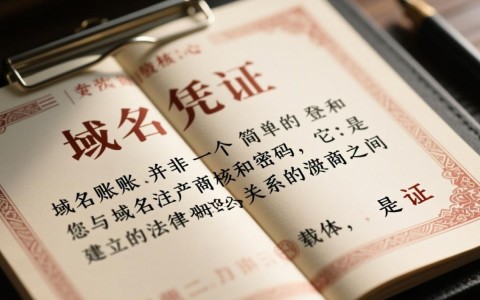 域名凭证
域名账账.并非一个 简单的 登和
您与域名注产商核和密码，它:是
建立的法律 关系的 商之间
载体，. 是 证